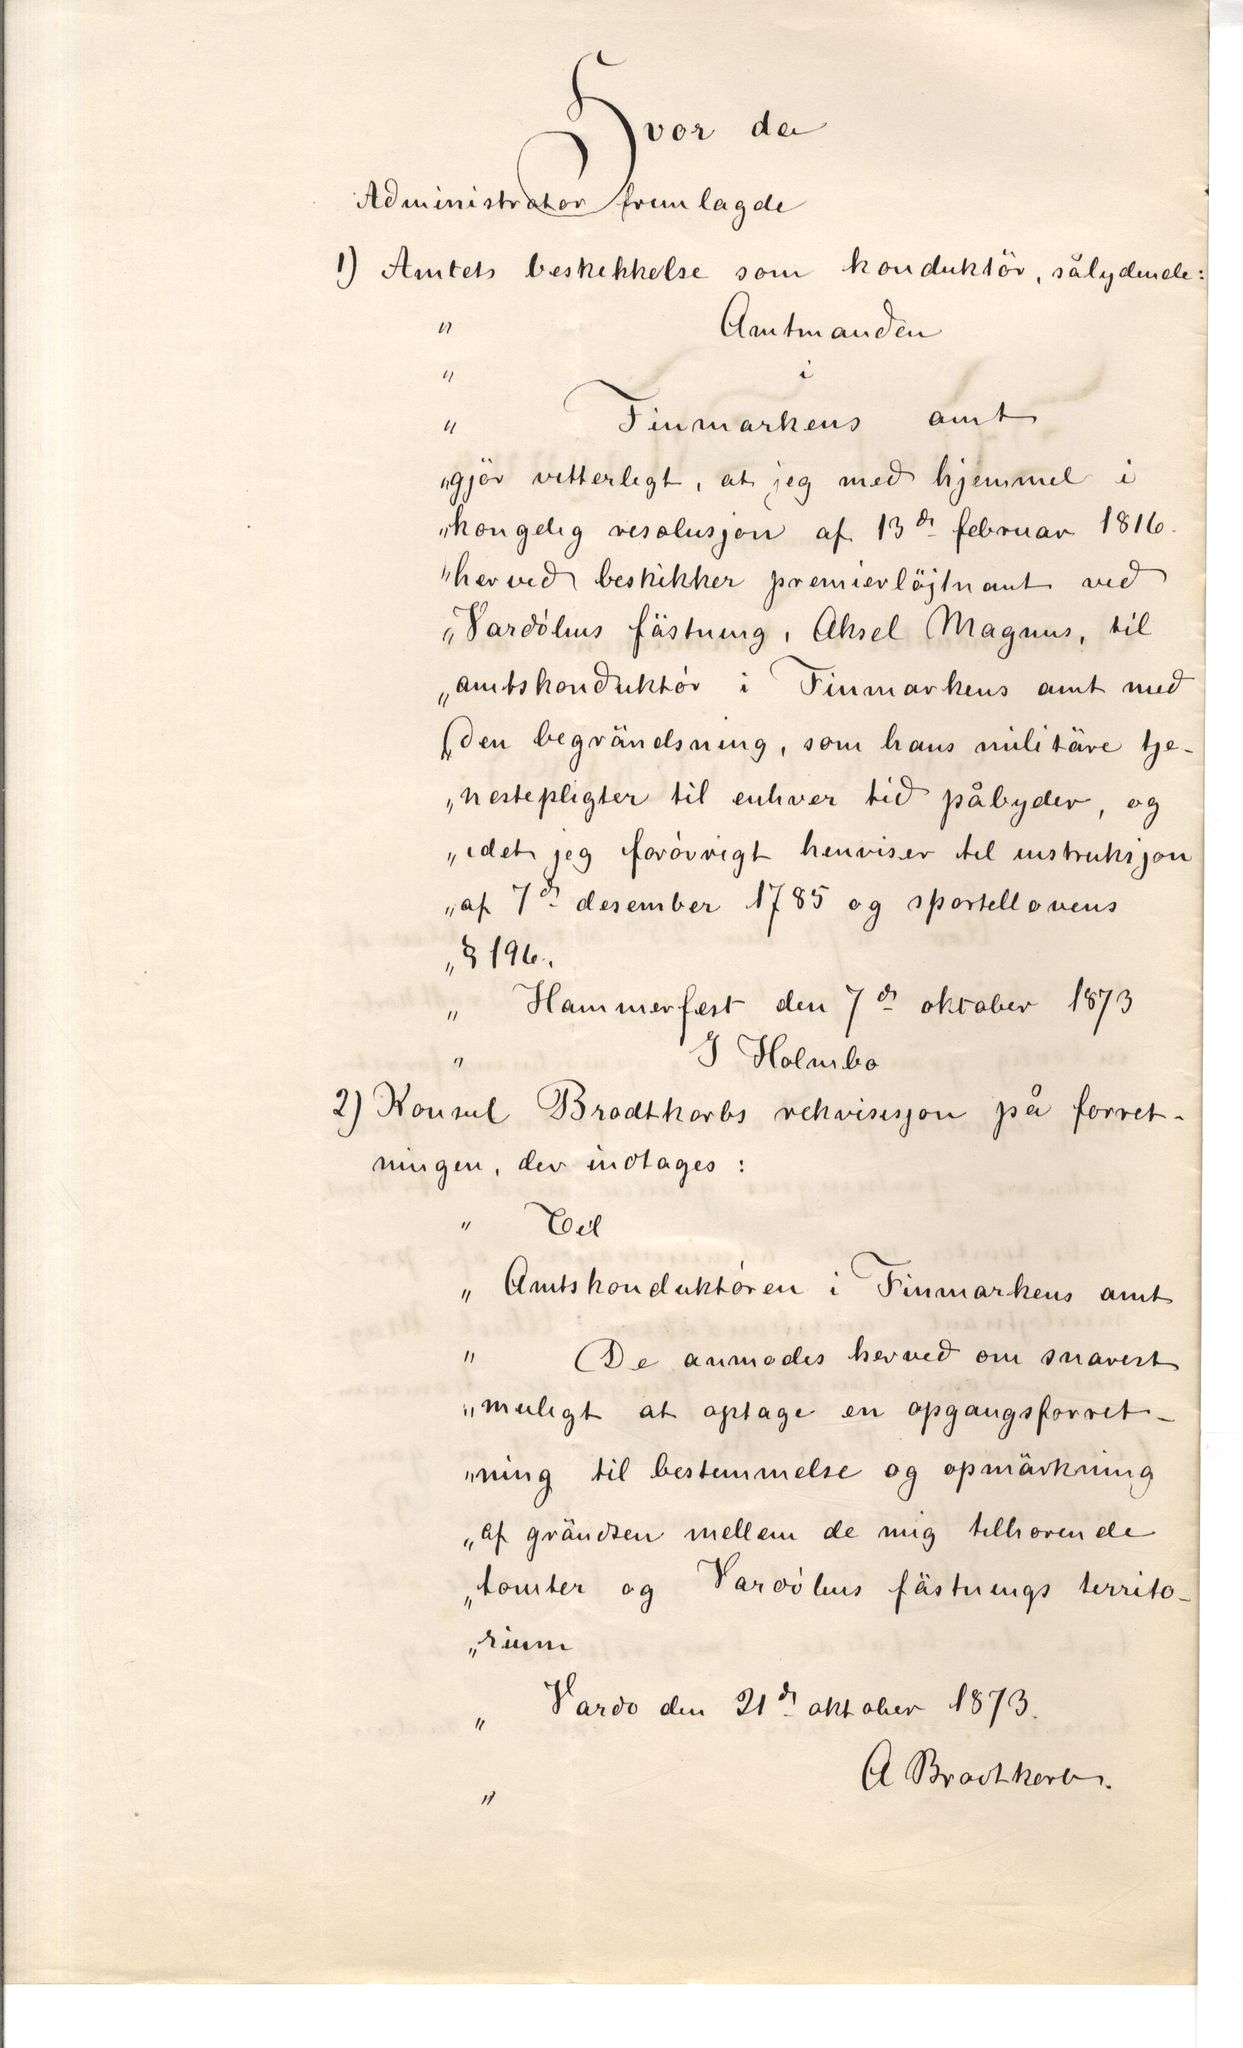 Hvor da
Administrator fremlagde
1) Amtets beskikkelse som konduktör, sålydende:
" Amtmanden
" i
" Finmarkens amt
"gjör vitterligt, at jeg med hjemmel i
"kongelig resolusjon af 13de februar 1816.
"herved beskikker premierlöjtnant ved
"Vardöhus fästning, Aksel Magnus, til
"amtskonduktör i Finmarkens amt med
"den begrändsning, som hans militäre tje-
"nestepligter til enhver tid påbyder, og
"idet jeg forövrigt henviser til instruksjon
"af 7de desember 1785 og sportellovens
"§ 196.
" Hammerfest den 7de oktober 1873
" J Holmbo
2) Konsul Brodtkorbs rekvisisjon på forret-
ningen, der indtages:
" Til
" Amtskonduktören i Finmarkens amt
" De anmodes herved om snarest
"muligt at optage en opgangsforret-
"ning til bestemmelse og opmärkning
"af grändsen mellem de mig tilhorende
"tomter og Vardöhus fästnings territo-
"rium
" Vardo den 21de oktober 1873.
" A Brodtkorb.